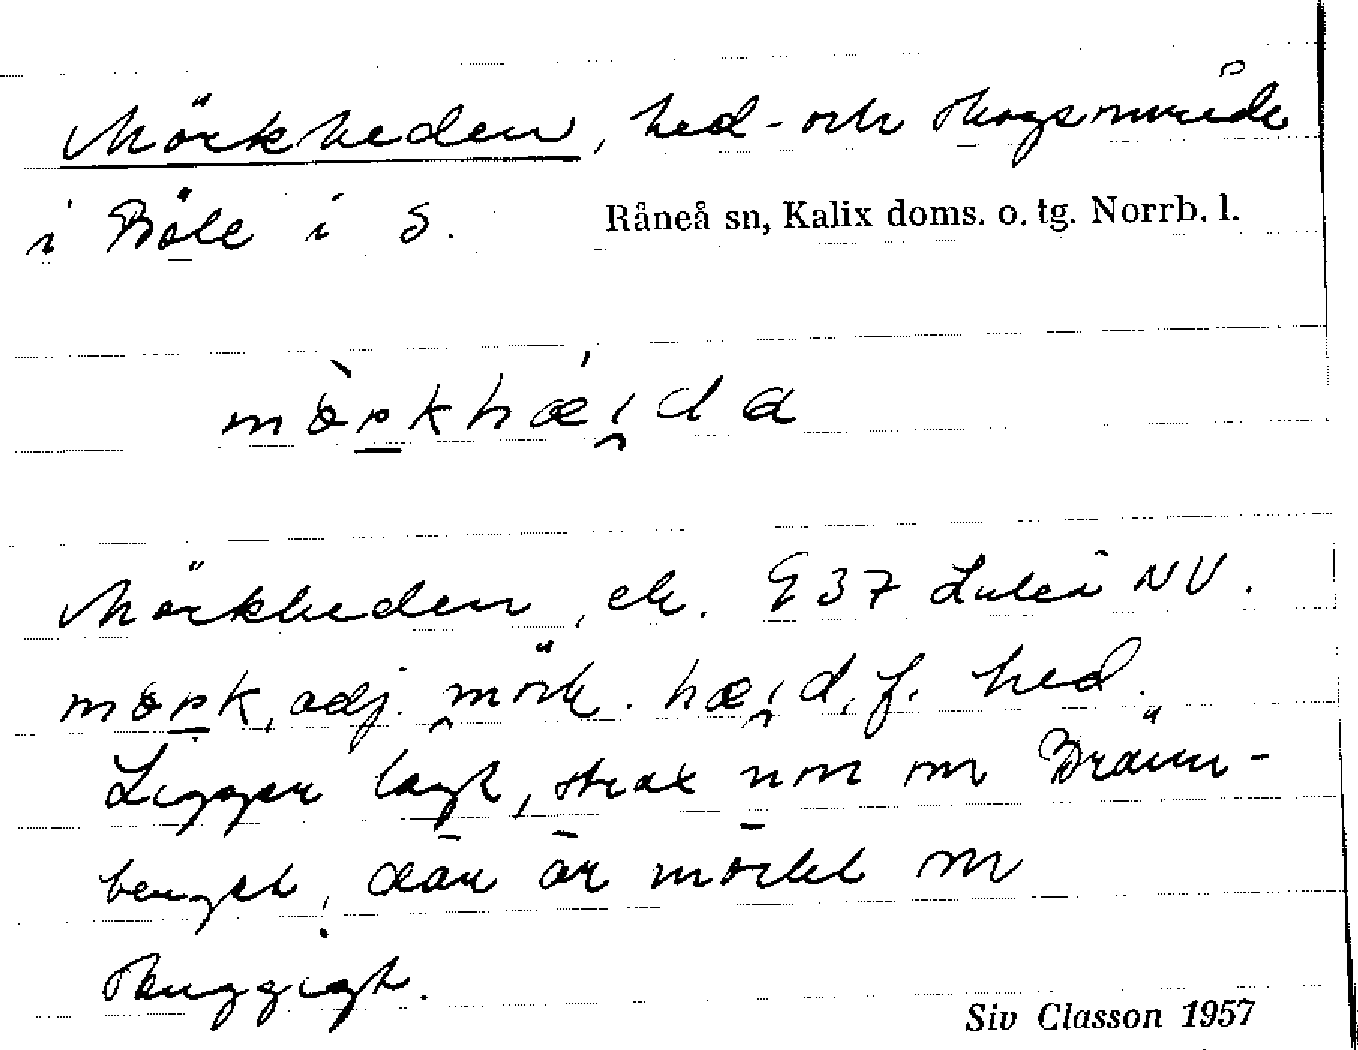 Mörkheden, hed- och skogsområde
i Böle i S. Råneå sn, Kalix doms. o. tg. Norrb. l.
mö̀rkhæ´i̯da
Mörkheden, ek. E 37 Luleå NV.
mörk, adj. mörk. hæi̯d, f. hed.
Ligger lågt, strax norr om Bränn-
berget, där är mörkt och
skuggigt.
Siv Classon 1957